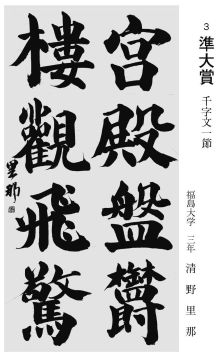 3 準大賞
千字文一節
福島大学 三年 清野里那
宮殿盤欝
樓觀飛驚
里那